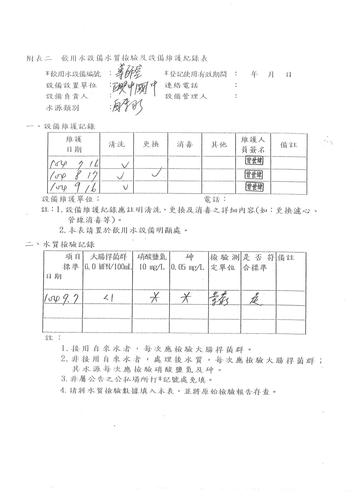 附表二 飲用水設備水質檢驗及設備維護紀錄表
*飲用水設備編號： *登記使用有效期間： 年 月 日
設備設置單位： 國中 連絡電話：
設備負責人： 設備管理人：
水源類別：自來水
一、設備維護紀錄
維護日期 清洗 更換 消毒 其他 維護人員簽名 備註
104 7 16 ✓
104 8 17 ✓ ✓
104 9 16 ✓
設備維護單位： 電話：
註：1.設備維護紀錄應註明清洗、更換及消毒之詳細內容(如：更換濾心、
管線消毒等)。
2.本表請置於飲用水設備明顯處。
二、水質檢驗記錄
項目 標準 日期 大腸桿菌群 6.0 MPN/100mL 硝酸鹽氮 10 mg/L 砷 0.05 mg/L 檢驗測定單位 是否符合標準 備註
104 9.7 <1 * * 是
註：
1.接用自來水者，每次應檢驗大腸桿菌群。
2.非接用自來水者，處理後水質，每次應檢驗大腸桿菌群；
其水源每次應檢驗硝酸鹽氮及砷。
3.非屬公告之公私場所打*記號處免填。
4.請將水質檢驗數據填入本表，並將原始檢驗報告存查。